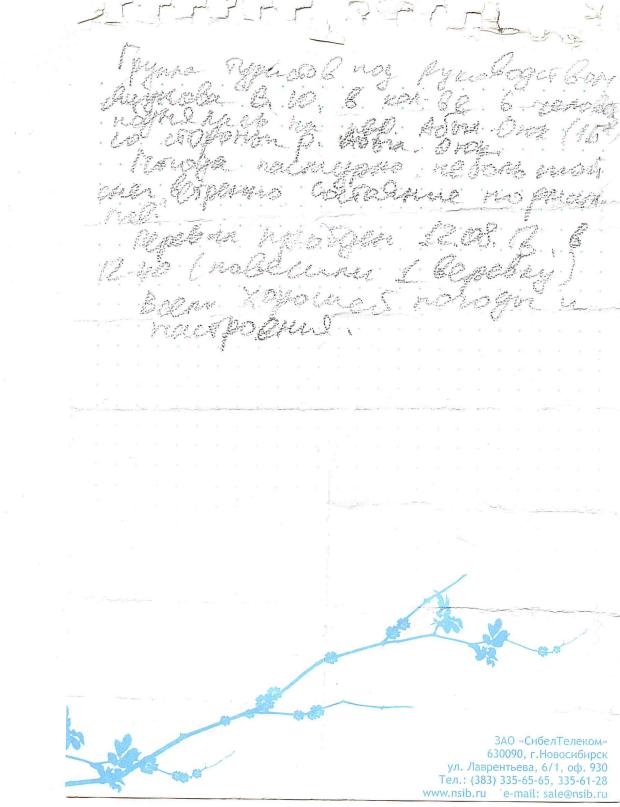 Группа туристов под руководством
В.Ю. в кол-ве 6 челове
поднялась на пер. Абыл-Оюк (1Б*)
со стороны р. Абыл-Оюк
Погода пасмурно небольшой
снег, ветренно состояние нормал
Перевал пройден 12.08. в
12-40 (повесили 1 веревку)
Всем хорошей погоды и
настроения.
ЗАО «СибелТелеком»
630090, г.Новосибирск
ул. Лаврентьева, 6/1, оф. 930
Тел.: (383) 335-65-65, 335-61-28
www.nsib.ru e-mail: sale@nsib.ru